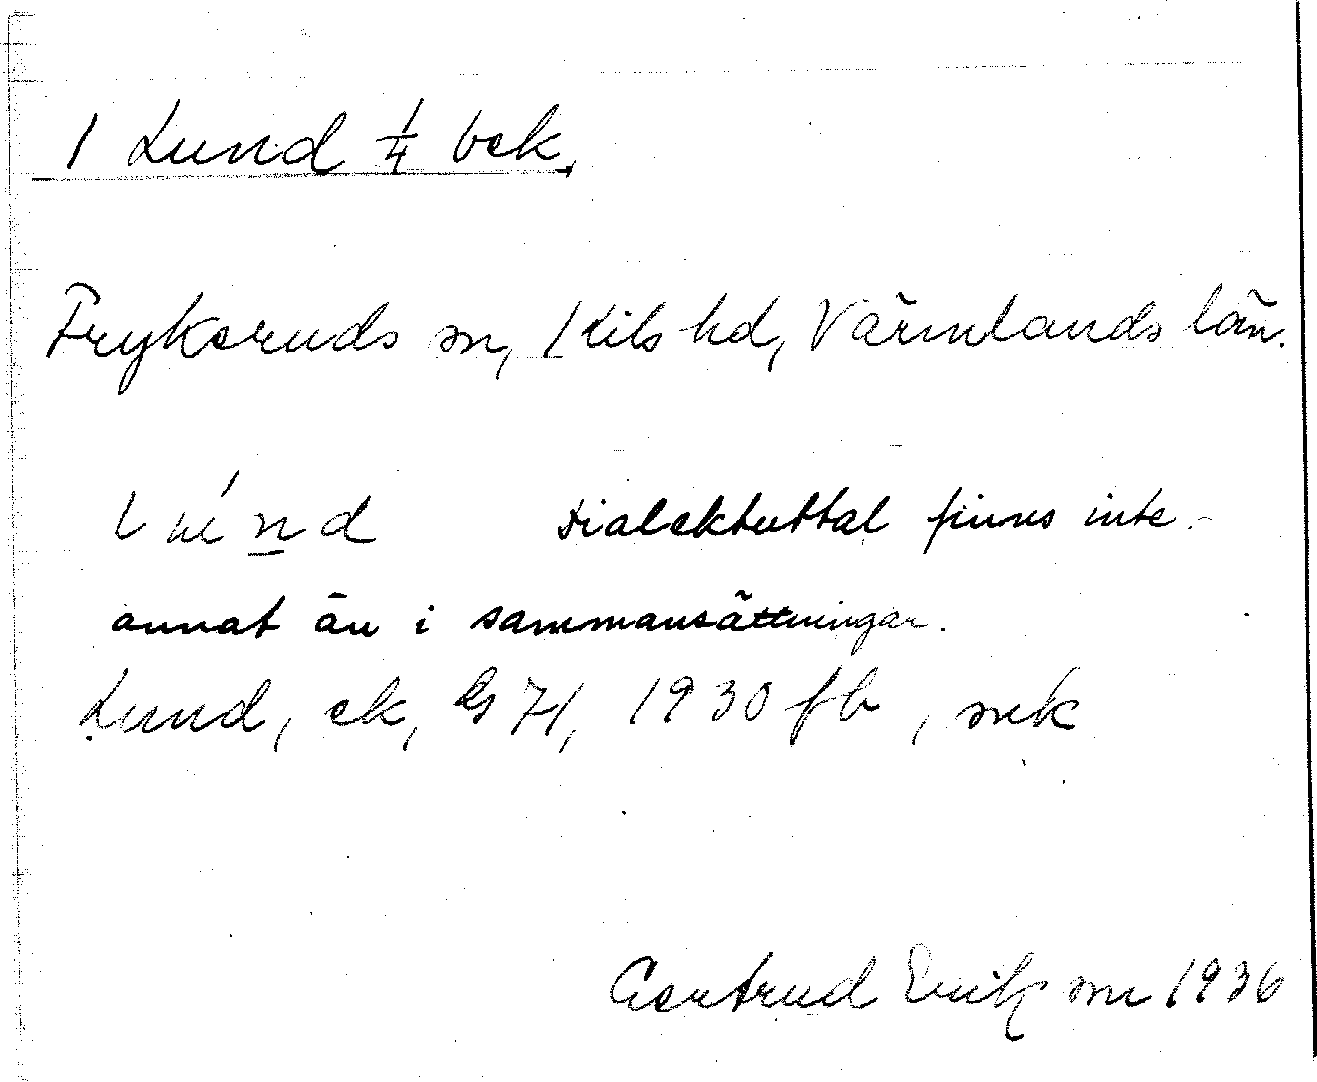 1 Lund 1/4 bek.
Frykeruds sn, Kils hd, Värmlands län.
lúnd dialektuttal finns inte
annat än i sammansättningar.
Lund, ek, G71, 1930 fb, mek
Gertrud Eriksson 1936